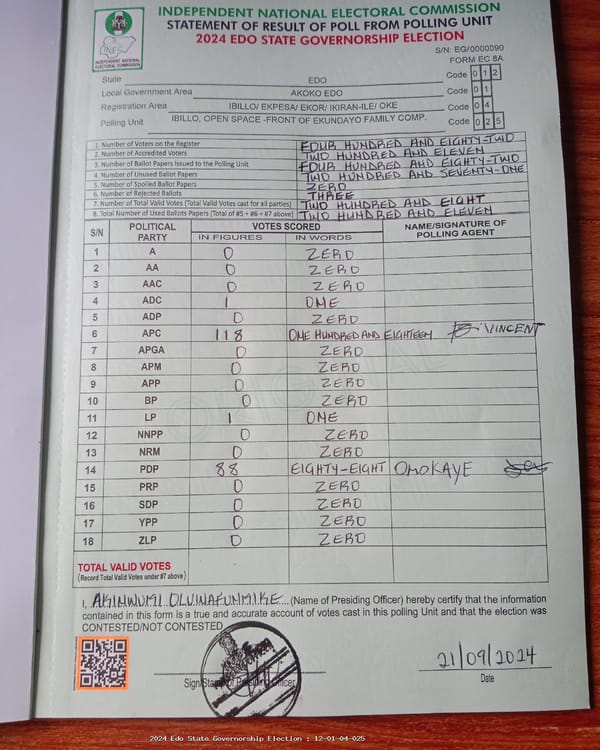 INDEPENDENT NATIONAL ELECTORAL COMMISSION
STATEMENT OF RESULT OF POLL FROM POLLING UNIT
2024 EDO STATE GOVERNORSHIP ELECTION
INDEPENDENT NATIONAL ELECTORAL COMMISSION
S/N: EG/0000090
FORM EC 8A
State EDO Code 0 1 2
Local Government Area AKOKO EDO Code 0 1
Registration Area IBILLO/ EKPESA/ EKOR/ IKIRAN-ILE/ OKE Code 0 4
Polling Unit IBILLO, OPEN SPACE -FRONT OF EKUNDAYO FAMILY COMP. Code 0 2 5
1. Number of Voters on the Register FOUR HUNDRED AND EIGHTY-TWO
2. Number of Accredited Voters TWO HUNDRED AND ELEVEN
3. Number of Ballot Papers Issued to the Polling Unit FOUR HUNDRED AND EIGHTY-TWO
4. Number of Unused Ballot Papers TWO HUNDRED AND SEVENTY-ONE
5. Number of Spoiled Ballot Papers ZERO
6. Number of Rejected Ballots THREE
7. Number of Total Valid Votes (Total Valid Votes cast for all parties) TWO HUNDRED AND EIGHT
8. Total Number of Used Ballots Papers (Total of #5 + #6 + #7 above) TWO HUNDRED AND ELEVEN
S/N POLITICAL PARTY VOTES SCORED NAME/SIGNATURE OF POLLING AGENT
IN FIGURES IN WORDS
1 A 0 ZERO
2 AA 0 ZERO
3 AAC 0 ZERO
4 ADC 1 ONE
5 ADP 0 ZERO
6 APC 118 ONE HUNDRED AND EIGHTEEN VINCENT
7 APGA 0 ZERO
8 APM 0 ZERO
9 APP 0 ZERO
10 BP 0 ZERO
11 LP 1 ONE
12 NNPP 0 ZERO
13 NRM 0 ZERO
14 PDP 88 EIGHTY-EIGHT OMOKAYE
15 PRP 0 ZERO
16 SDP 0 ZERO
17 YPP 0 ZERO
18 ZLP 0 ZERO
TOTAL VALID VOTES
(Record Total Valid Votes under #7 above)
I, AKINWUMI OLUINAFUNMIKE (Name of Presiding Officer) hereby certify that the information
contained in this form is a true and accurate account of votes cast in this polling Unit and that the election was
CONTESTED/NOT CONTESTED
21/09/2024
Date
2024 Edo State Governorship Election : 12-01-04-025